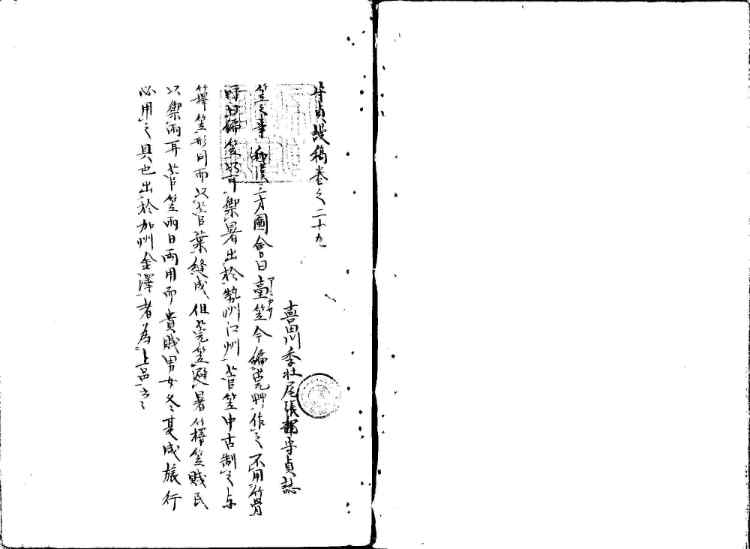 守貞謾稿巻之二十九
喜田川季壮尾張舎守貞誌
笠之事 和漢三才圖會曰臺笠今編莞艸作之不用竹骨
編笠 禦暑出於勢州江州菅笠中古制之与
簦笠形同而以菅葉縫成但莞笠避暑竹籜笠賤民
以禦雨耳菅笠雨日両用而貴賤男女冬夏成旅行
必用之具也出於加州金澤者為上品云々